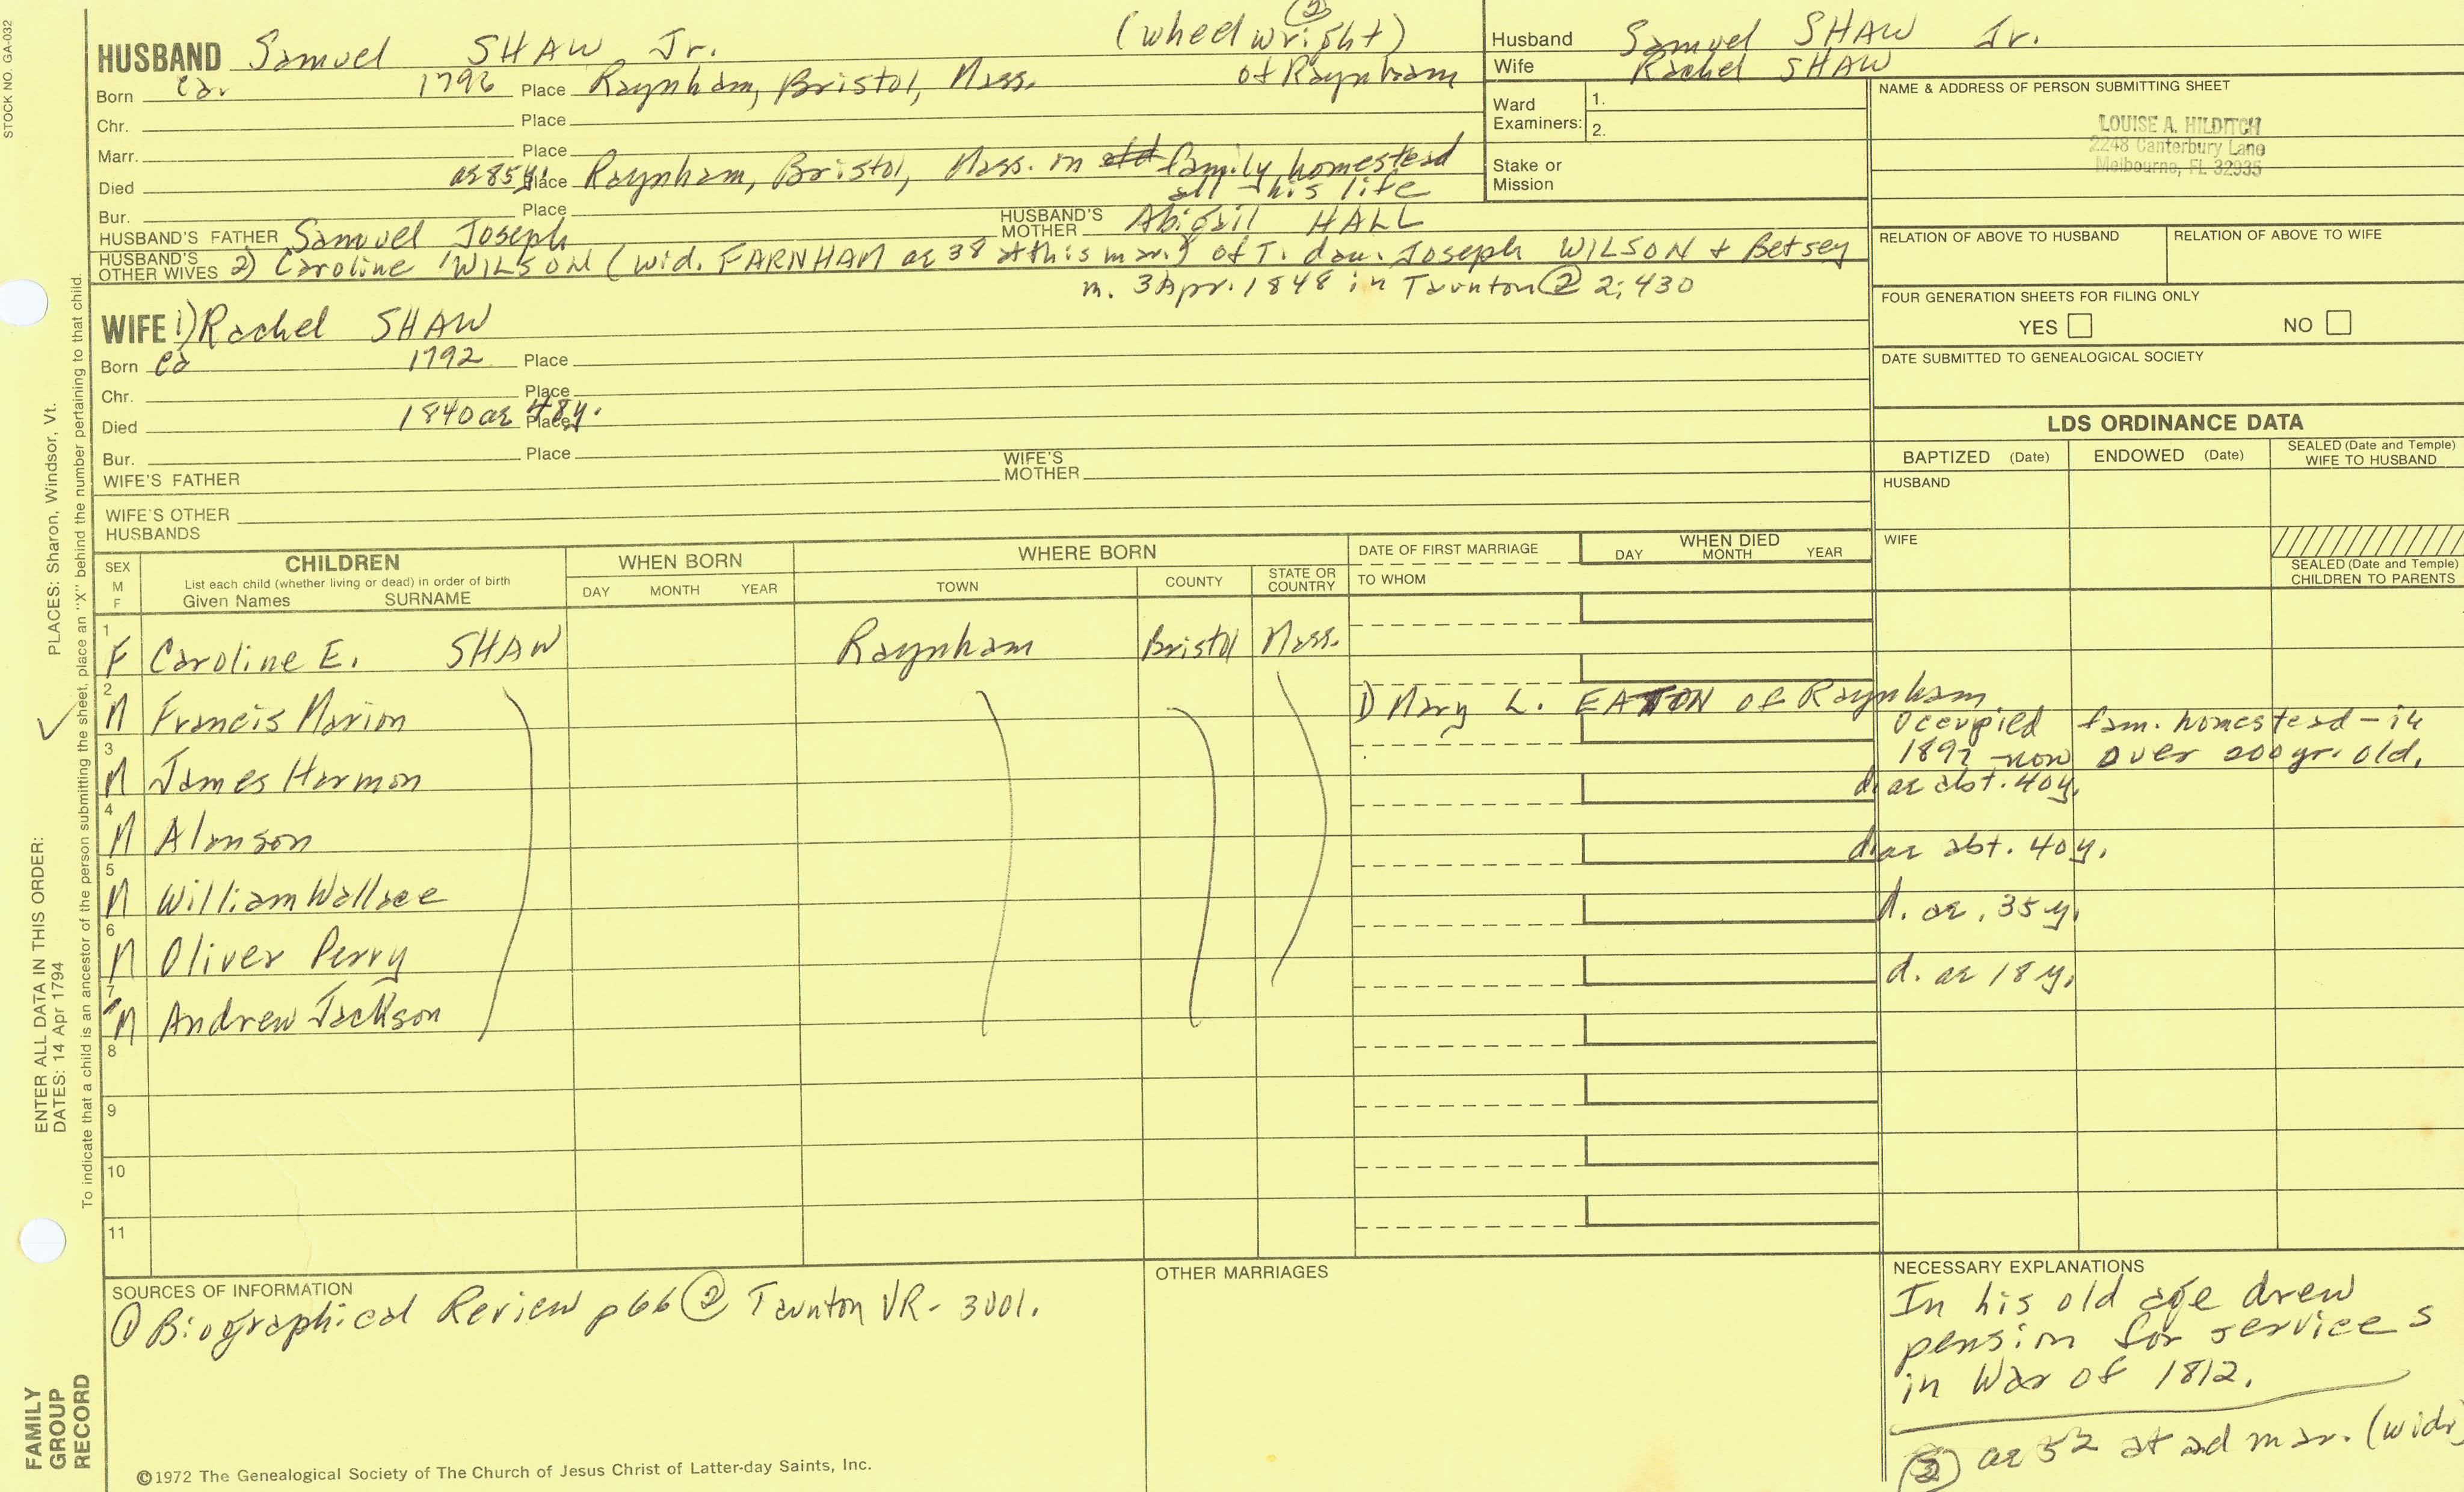 STOCK NO. GA-032
HUSBAND Samuel SHAW Jr. (wheelwright) ②
Born ca. 1796 Place Raynham, Bristol, Mass. of Raynham
Chr. Place
Marr. Place
Died ae 85y. Place Raynham, Bristol, Mass. in old family homestead
all his life
Bur. Place
HUSBAND'S FATHER Samuel Joseph HUSBAND'S MOTHER Abigail HALL
HUSBAND'S OTHER WIVES 2) Caroline WILSON (wid. FARNHAM ae 38 at this mar.) of T. dau. Joseph WILSON + Betsey
m. 3 Apr. 1848 in Taunton ② 2:430
WIFE 1) Rachel SHAW
Born ca 1792 Place
Chr. Place
Died 1840 ae 48y. Place
Bur. Place
WIFE'S FATHER WIFE'S MOTHER
WIFE'S OTHER HUSBANDS
Husband Samuel SHAW Jr.
Wife Rachel SHAW
Ward Examiners: 1.
2.
Stake or Mission
NAME & ADDRESS OF PERSON SUBMITTING SHEET
LOUISE A. HILDITCH
2248 Canterbury Lane
Melbourne, FL 32935
RELATION OF ABOVE TO HUSBAND RELATION OF ABOVE TO WIFE
FOUR GENERATION SHEETS FOR FILING ONLY
YES NO
DATE SUBMITTED TO GENEALOGICAL SOCIETY
LDS ORDINANCE DATA
BAPTIZED (Date) ENDOWED (Date) SEALED (Date and Temple) WIFE TO HUSBAND
HUSBAND
WIFE
SEALED (Date and Temple) CHILDREN TO PARENTS
SEX M F CHILDREN WHEN BORN WHERE BORN DATE OF FIRST MARRIAGE WHEN DIED
List each child (whether living or dead) in order of birth
Given Names SURNAME DAY MONTH YEAR TOWN COUNTY STATE OR COUNTRY TO WHOM DAY MONTH YEAR
1 F Caroline E. SHAW Raynham Bristol Mass.
2 M Francis Marion 1) Mary L. EATON of Raynham
Occupied fam. homestead - in
1897 - now over 200 yr. old.
3 M James Harmon d. ae abt. 40y.
4 M Alanson d. ae abt. 40y.
5 M William Wallace d. ae. 35 y.
6 M Oliver Perry d. ae 18 y.
7 M Andrew Jackson
8
9
10
11
SOURCES OF INFORMATION
① Biographical Review p66 ② Taunton VR - 3 vol.
OTHER MARRIAGES
NECESSARY EXPLANATIONS
In his old age drew
pension for services
in War of 1812.
② ae 52 at 2d mar. (widr)
©1972 The Genealogical Society of The Church of Jesus Christ of Latter-day Saints, Inc.
FAMILY
GROUP
RECORD
ENTER ALL DATA IN THIS ORDER:
DATES: 14 Apr 1794
PLACES: Sharon, Windsor, Vt.
To indicate that a child is an ancestor of the person submitting the sheet, place an "X" behind the number pertaining to that child.